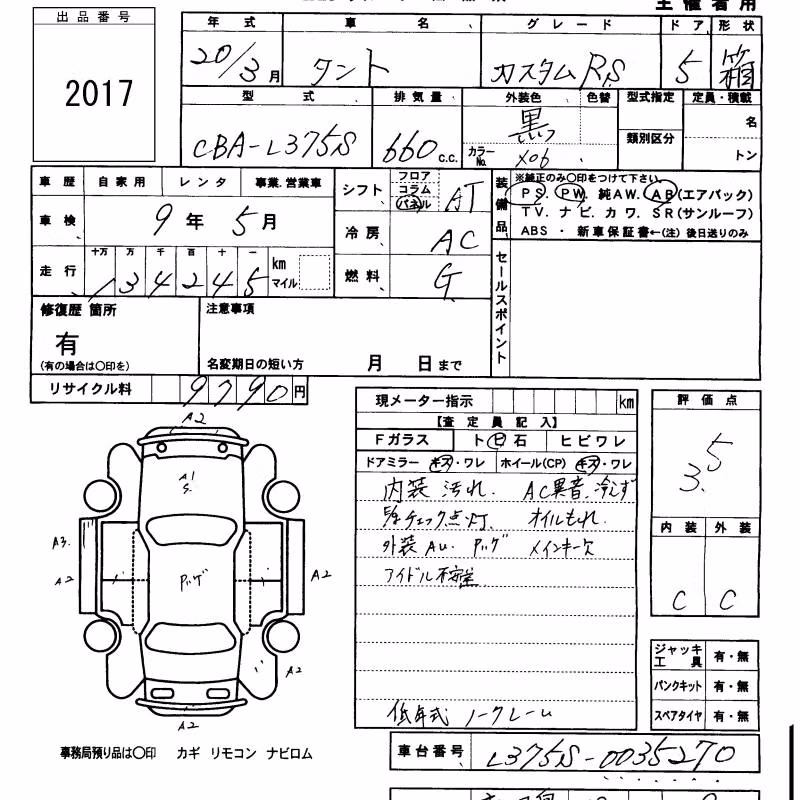 主催者用
出品番号
2017
年式 車名 グレード ドア 形状
20/3月 タント カスタムRS 5 箱
型式 排気量 外装色 色替 型式指定 定員・積載
CBA-L375S 660 c.c. 黒 類別区分 名
カラーNo. X06 トン
車歴 自家用 レンタ 事業.営業車
車検 9年 5月
走行 十万 万 千 百 十 一 km マイル
134245
シフト フロア コラム パネル AT
冷房 AC
燃料 G
装備品 ※純正のみ〇印をつけて下さい
PS. PW. 純AW. AB(エアバック)
TV. ナビ. カワ. SR(サンルーフ)
ABS ・ 新車保証書←(注)後日送りのみ
セールスポイント
修復歴 箇所
有
(有の場合は〇印を)
注意事項
名変期日の短い方 月 日まで
リサイクル料 9790円
現メーター指示 km
【査定員記入】
Fガラス トビ石 ヒビワレ
ドアミラー キズ・ワレ ホイール(CP) キズ・ワレ
内装 汚れ. AC異音.冷えず
チェック点灯. オイルもれ.
外装 AU. メインキー欠
アイドル不安定
低年式 ノークレーム
評価点
3.5
内装 外装
C C
ジャッキ工具 有・無
パンクキット 有・無
スペアタイヤ 有・無
A2
A1
S.
A3.
A2
A2
A2
A2
事務局預り品は〇印 カギ リモコン ナビロム
車台番号 L375S-0035270